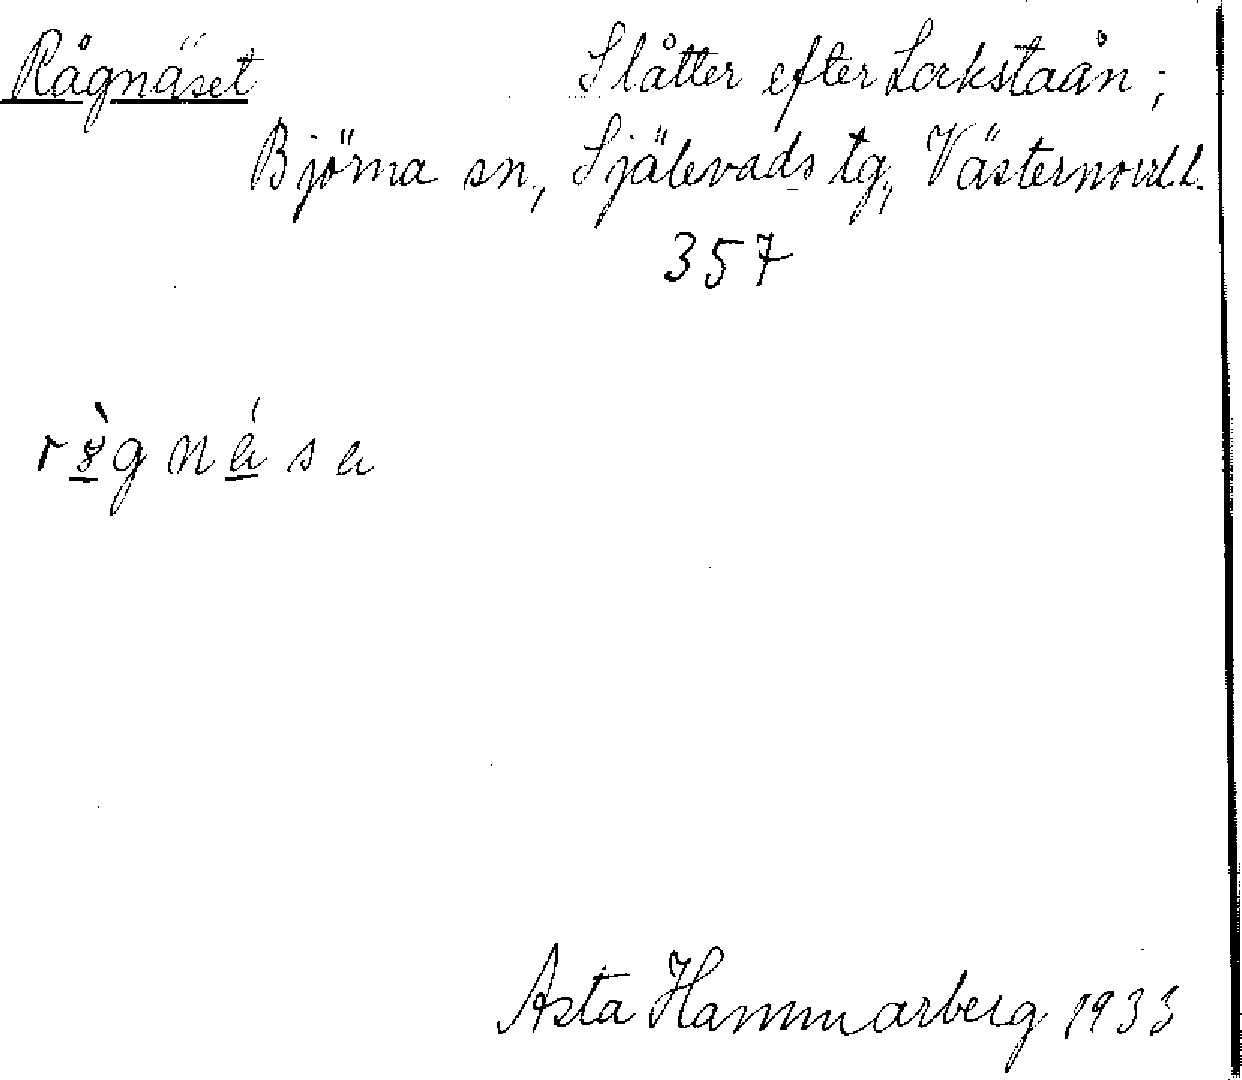 Rågnäset Slåtter efter Lockstaån;
Björna sn, Själevads tg, Västernorrl.l.
357
Asta Hammarberg 1933